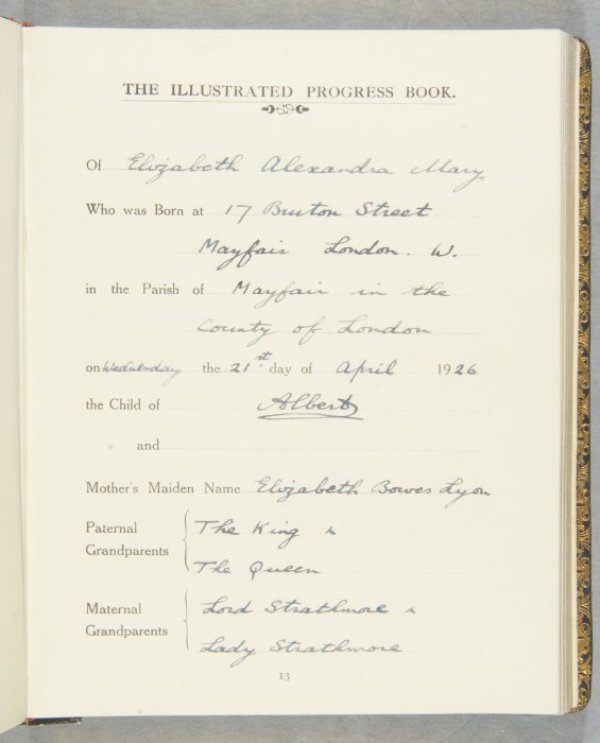 THE ILLUSTRATED PROGRESS BOOK.
Of Elizabeth Alexandra Mary
Who was Born at 17 Bruton Street
Mayfair London. W.
in the Parish of Mayfair in the
County of London
on Wednesday the 21st. day of April 1926
the Child of Albert
and
Mother's Maiden Name Elizabeth Bowes Lyon
Paternal Grandparents The King &
The Queen
Maternal Grandparents Lord Strathmore &
Lady Strathmore
13